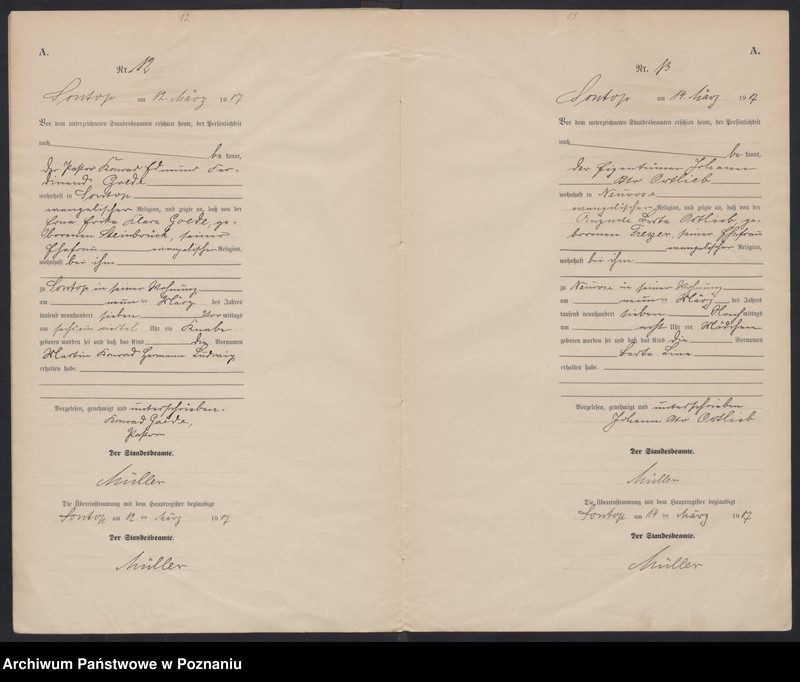 12
A.
Nr. 12
Sontop am 12. März 1907
Vor dem unterzeichneten Standesbeamten erschien heute, der Persönlichkeit
nach
be kannt,
der Pastor Konrad Edmund Fer-
dinand Goede
wohnhaft in Sontop
evangelischer Religion, und zeigte an, daß von der
Erna Erika Klara Goede, ge-
borenen Steinbrück, seiner
Ehefrau evangelischer Religion,
wohnhaft bei ihm
zu Sontop in seiner Wohnung
am neun ten März des Jahres
tausend neunhundert sieben Vor mittags
um Uhr ein Knabe
geboren worden sei und daß das Kind die Vornamen
Martin Konrad Hermann Ludwig
erhalten habe.
Vorgelesen, genehmigt und unterschrieben.
Konrad Goede,
Pastor
Der Standesbeamte.
Müller
Die Übereinstimmung mit dem Hauptregister beglaubigt
Sontop am 12 ten März 1907
Der Standesbeamte.
Müller
13
A.
Nr. 13
Sontop am 14. März 1907
Vor dem unterzeichneten Standesbeamten erschien heute, der Persönlichkeit
nach
be kannt,
der Eigentümer Johann
Otto Ortlieb
wohnhaft in Neurose
evangelischer Religion, und zeigte an, daß von der
Auguste Berta Ortlieb, ge-
borenen Freyer, seiner Ehefrau
evangelischer Religion,
wohnhaft bei ihm
zu Neurose in seiner Wohnung
am neun ten März des Jahres
tausend neunhundert sieben Nach mittags
um acht Uhr ein Mädchen
geboren worden sei und daß das Kind die Vornamen
Berta Lina
erhalten habe.
Vorgelesen, genehmigt und unterschrieben
Johann Otto Ortlieb
Der Standesbeamte.
Müller
Die Übereinstimmung mit dem Hauptregister beglaubigt
Sontop am 14 ten März 1907
Der Standesbeamte.
Müller
Archiwum Państwowe w Poznaniu